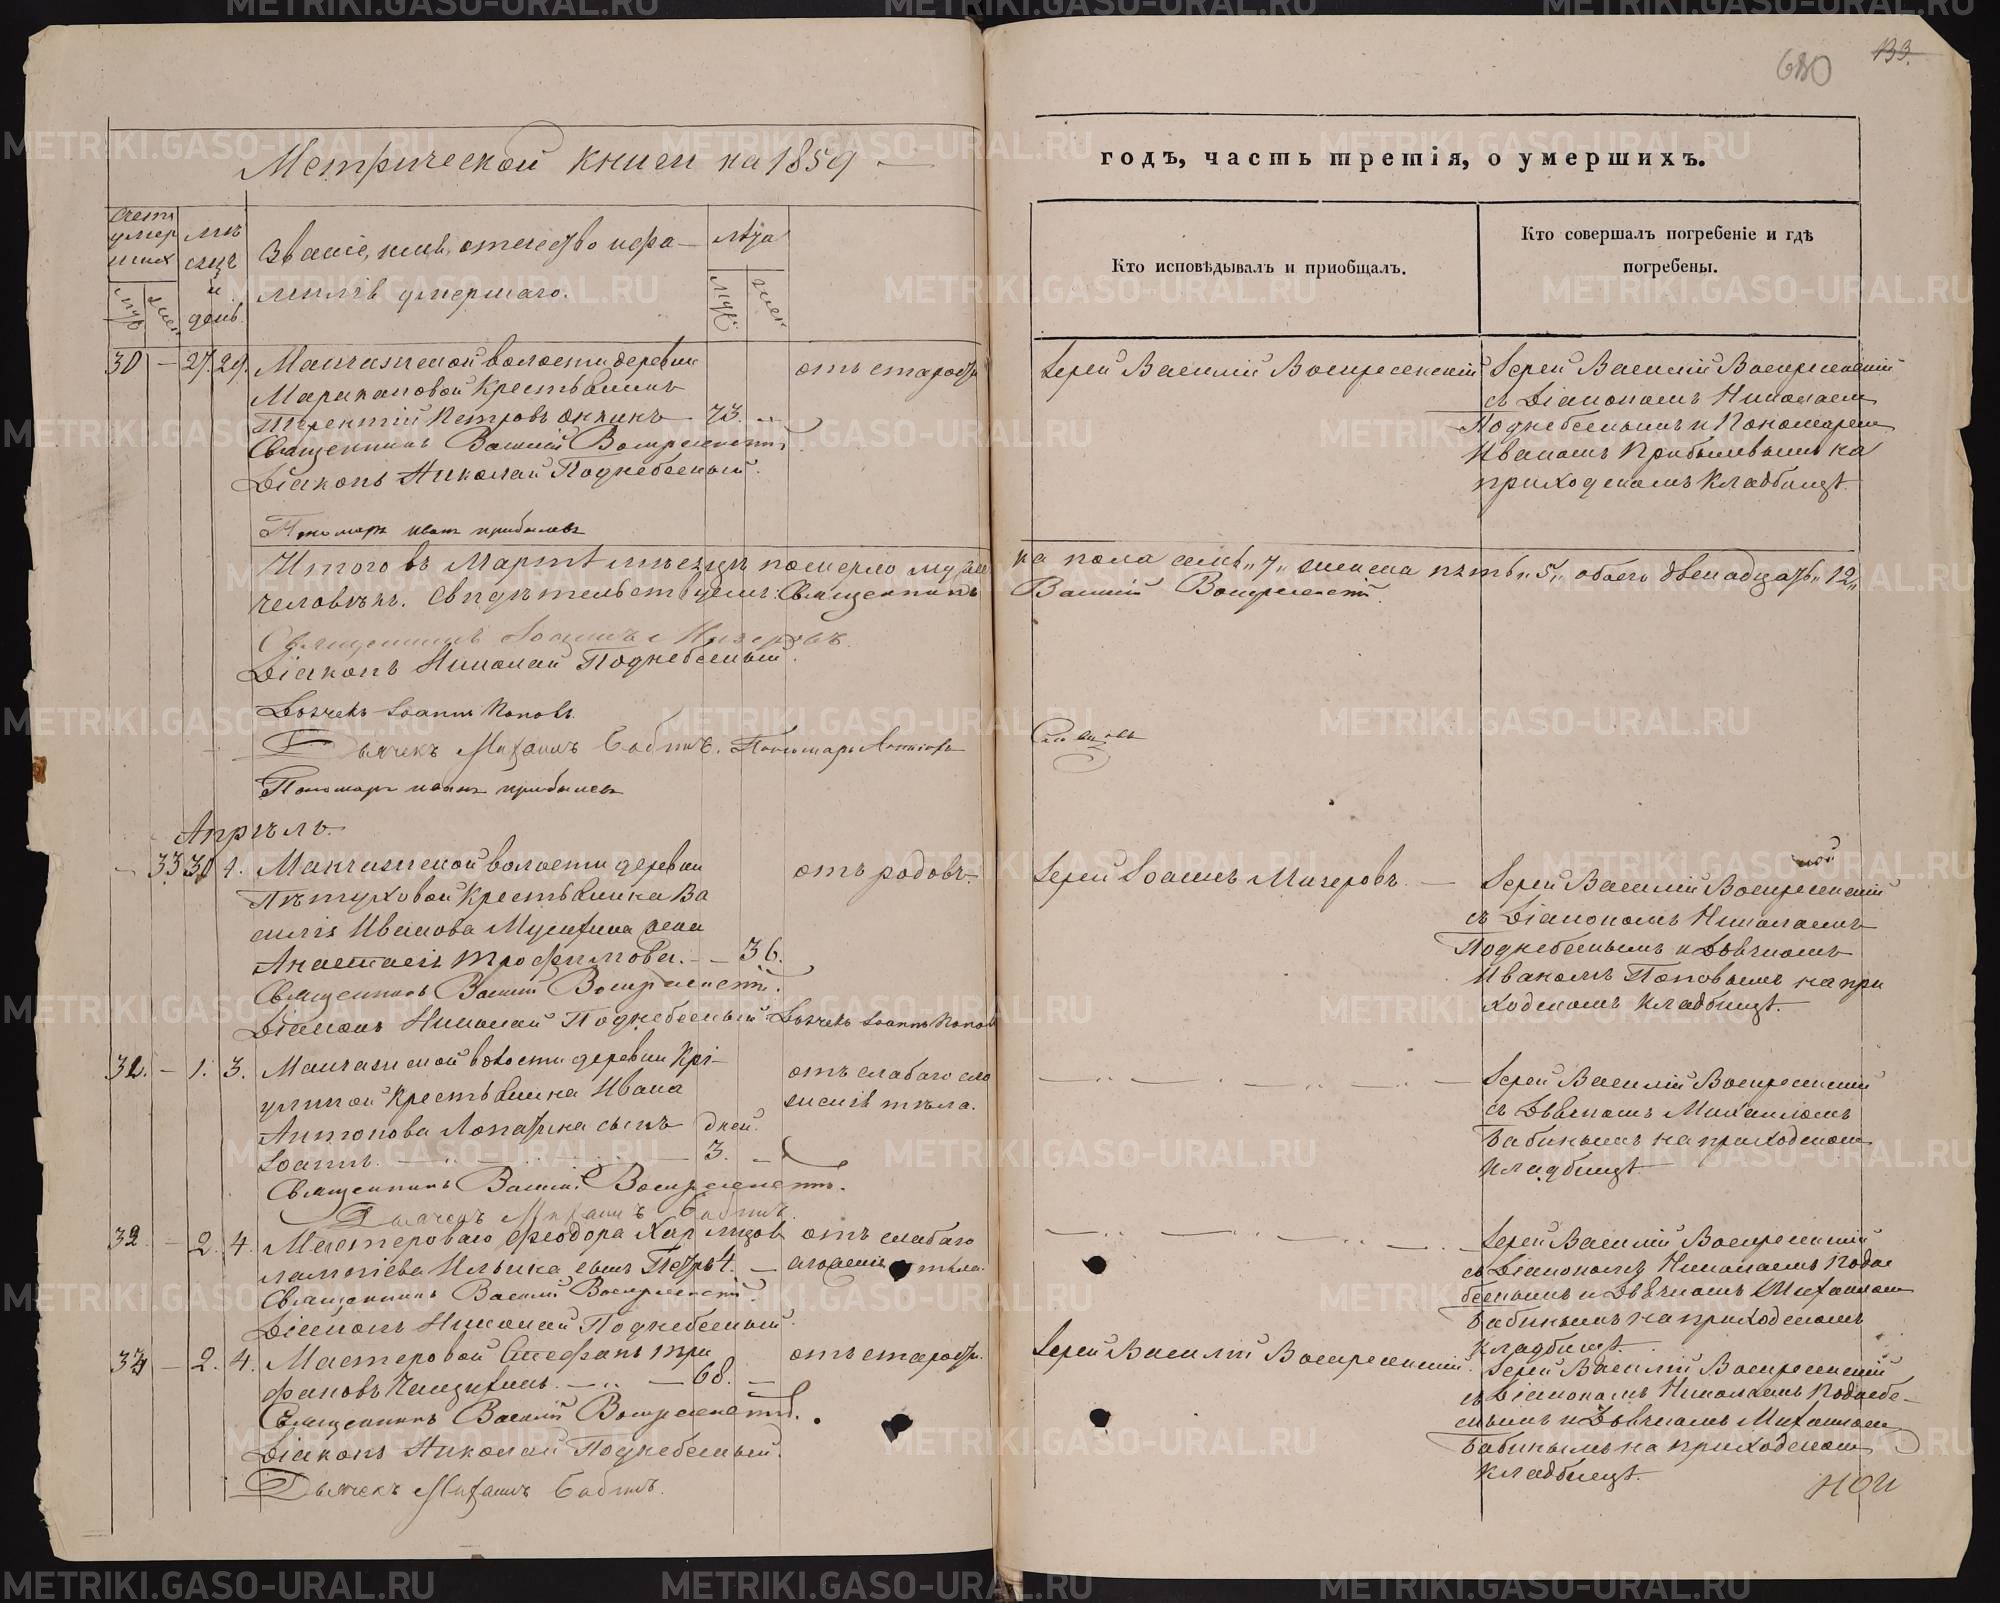 680
133.
Метрической книги на 1859
годъ, часть третія, о умершихъ.
Счетъ умер шихъ
муж жен
мѣ сяцъ и день.
Званіе, имя, отечество и фа-
милія умершаго.
лѣта
муж. жен
Кто исповѣдывалъ и пріобщалъ.
Кто совершалъ погребеніе и гдѣ
погребены.
30 – 27. 29. Манчажской волости деревни
крестьянинъ
Терентій Петровъ 73.
отъ старости
Іерей Василій Воскресенскій
Іерей Василій Воскресенскій
съ Діакономъ Николаем
Поднебеснымъ и Пономарем
Иваномъ Прибылевымъ на
приходскомъ кладбищѣ.
Священникъ Василій Воскресенскій
Діаконъ Николай Поднебесный.
Пономарь Иванъ Прибылевъ
Итого въ Мартѣ мѣсяцѣ померло муже
ска пола семь „7„ женска пять „5„ обоего двенадцать „12„
человѣкъ. Свидѣтельствуемъ: Священникъ
Василій Воскресенскій.
Священникъ Іоаннъ Мичеровъ.
Діаконъ Николай Поднебесный.
Дьячекъ Іоаннъ Поповъ.
Дьячекъ Михаилъ Бабинъ. Пономарь
Пономарь Иванъ Прибылевъ
Апрѣль.
– 33 30 1. Манчажской волости деревни
Пѣтуховой крестьянина Ва
силія Иванова жена
Анастасія Трофимова. – – 36.
отъ родовъ.
Іерей Іоаннъ Мичеровъ. –
Іерей Василій Воскресенскій
съ Діакономъ Николаемъ
Поднебеснымъ и Дьячкомъ
Иваномъ Поповымъ на при
ходскомъ кладбищѣ.
Священникъ Василій Воскресенскій.
Діаконъ Николай Поднебесный. Дьячекъ Іоаннъ Поповъ
– 1. 3. Манчажской волости деревни
крестьянина Ивана
Антонова сынъ дней.
Іоаннъ. 3. –
отъ слабаго сло
женія тѣла.
Іерей Василій Воскресенскій
съ Дьячкомъ Михаиломъ
Бабинымъ на приходском
кладбищѣ.
Священникъ Василій Воскресенскій.
Дьячекъ Михаилъ Бабинъ.
– 2. 4. Мастероваго Феодора
сынъ Петръ
отъ слабаго
сложенія тѣла.
Іерей Василій Воскресенскій
съ Діакономъ Николаемъ Подне
беснымъ и Дьячкомъ Михаилом
Бабинымъ на приходскомъ
кладбищѣ.
Священникъ Василій Воскресенскій.
Діаконъ Николай Поднебесный.
– 2. 4. Мастеровой Стефанъ Три
фановъ – 68. –
отъ старости.
Іерей Василій Воскресенскій.
Іерей Василій Воскресенскій
съ Діакономъ Николаемъ Поднебе-
снымъ и Дьячкомъ Михаилом
Бабинымъ на приходском
кладбищѣ.
Священникъ Василій Воскресенскій.
Діаконъ Николай Поднебесный.
Дьячекъ Михаилъ Бабинъ.
METRIKI.GASO-URAL.RU